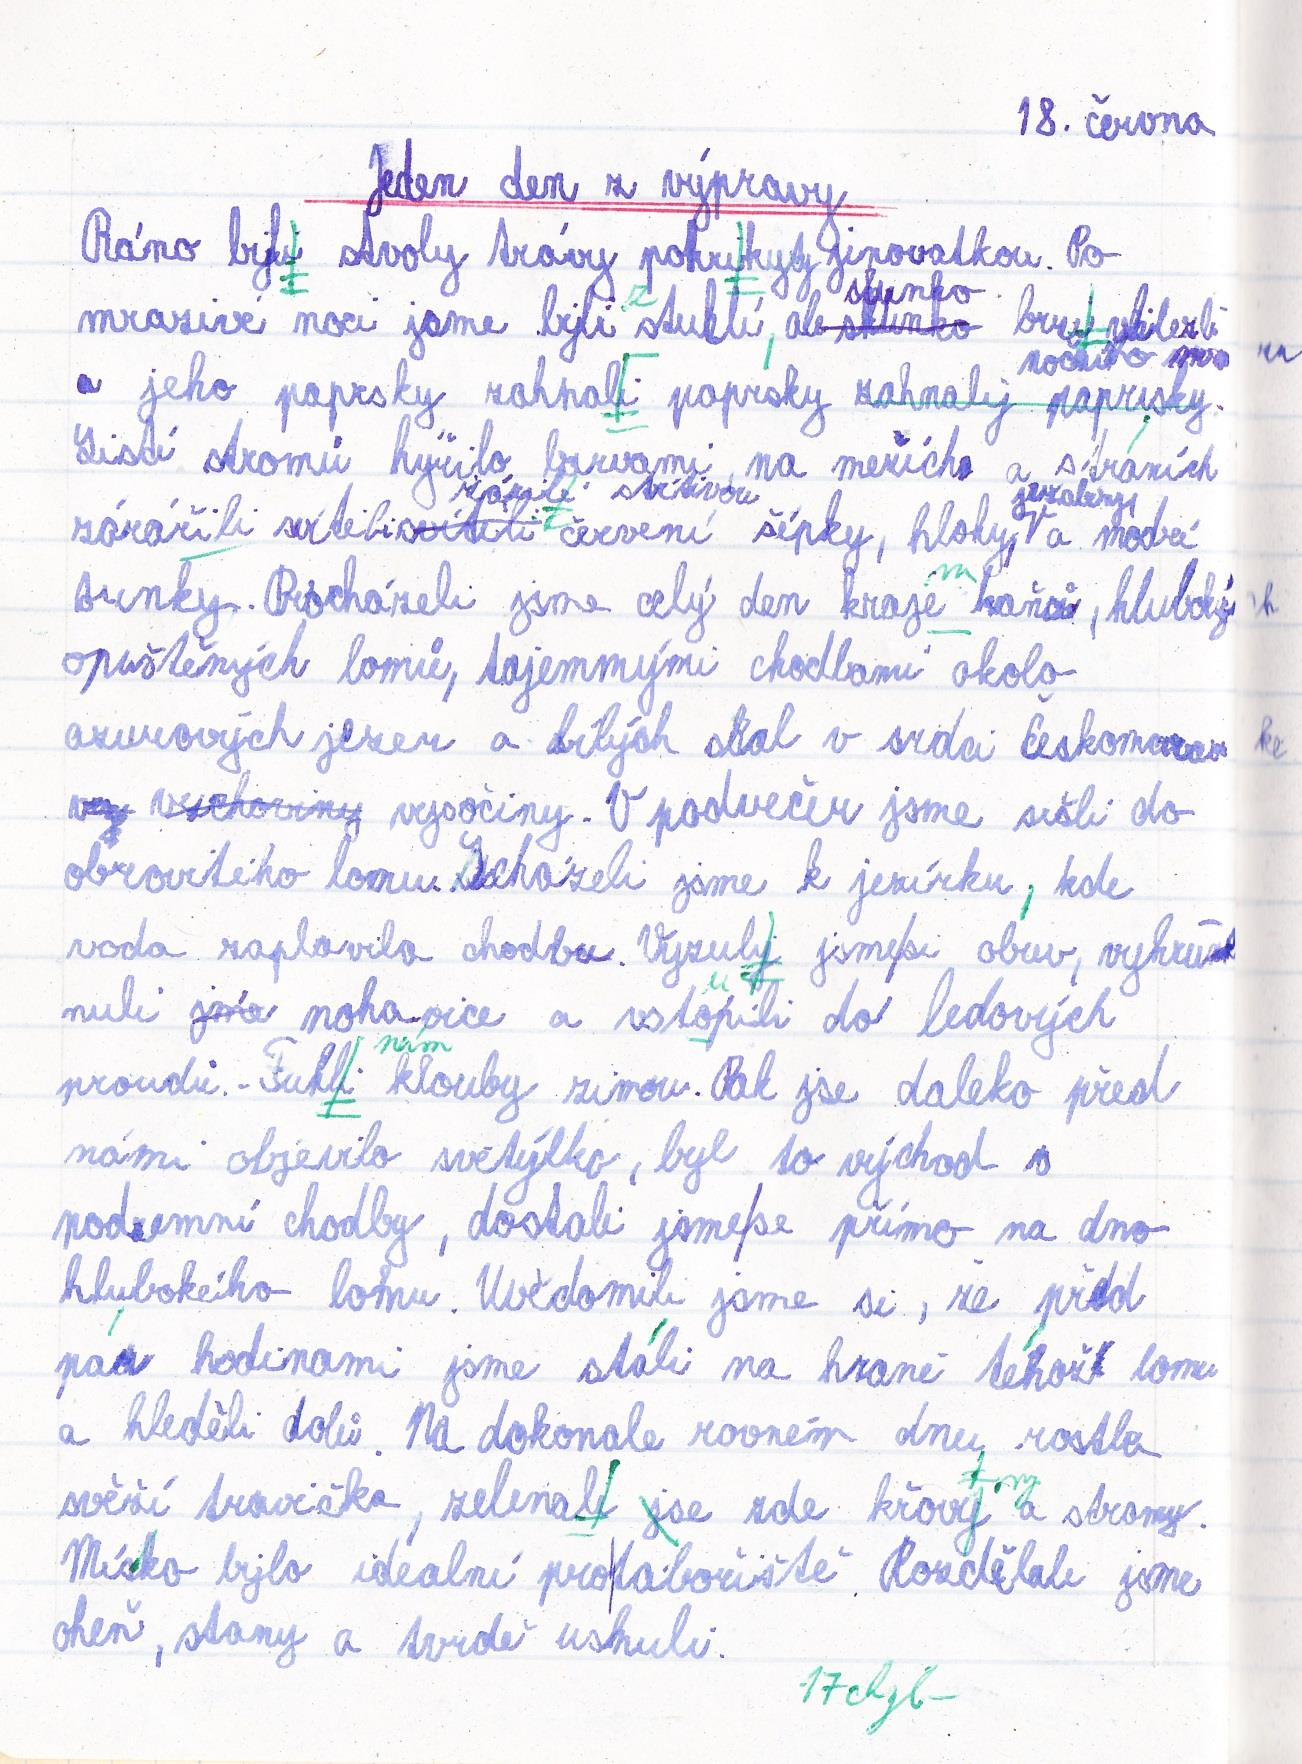 18. června
Jeden den z výpravy
Ráno byly stvoly trávy pokryty jinovatkou. Po
mrazivé noci jsme byli ztuhlí, ale slunko brzy
a jeho paprsky zahnaly paprsky zahnalij paprisky.
Listí stromů hýřilo barvami, na mezích a stráních
zářili svítili zářili svítivou červení šípky, hlohy, jeřabiny a modré
trnky. Procházeli jsme celý den krajem kaňonů, hlubokých
opuštěných lomů, tajemnými chodbami okolo
azurových jezer a bílých skal v srdci Českomoravské
vrchoviny vysočiny. V podvečer jsme sešli do
obrovitého lomu. Scházeli jsme k jezírku, kde
voda zaplavila chodbu. Vyzuly jsme/si obuv, vyhrnuli
nuli jsme nohavice a vstoupili do ledových
proudů. - Tuhly nám klouby zimou. Pak jse daleko před
námi objevilo světýlko, byl to východ z
podzemní chodby, dostali jsme/se přímo na dno
hlubokého lomu. Uvědomili jsme si, že před
pár hodinami jsme stáli na hraně téhož lomu
a hleděli dolů. Na dokonale rovném dnu rostla
svěží travička, zelenali jse zde křovy a stromy.
Místo bylo idealní pro|tabořiště. Rozdělali jsme
oheň, stany a tvrdě usnuli.
17 chyb